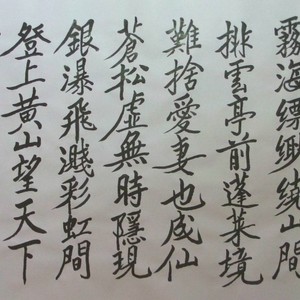 霧海縹緲繞山間
排雲亭前蓬萊境
難捨愛妻也成仙
蒼松虛無時隱現
銀瀑飛濺彩虹間
登上黃山望天下